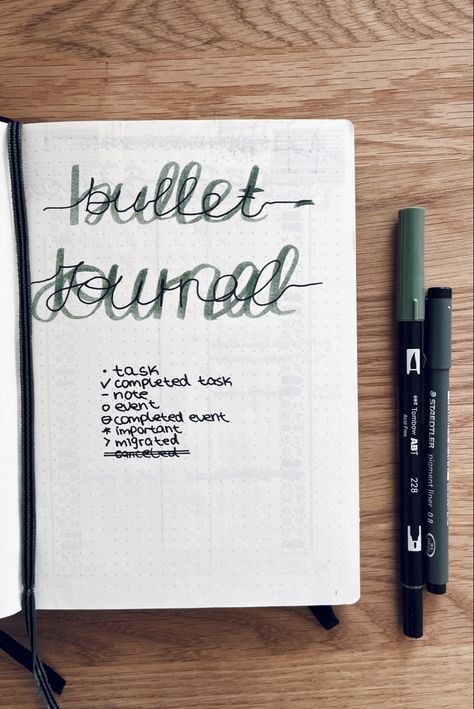 bullet
Journal
• task
✓ completed task
– note
o event
⊖ completed event
* important
> migrated
canceled
Tombow ABT
Acid Free
228
STAEDTLER
pigment liner 0.8
1